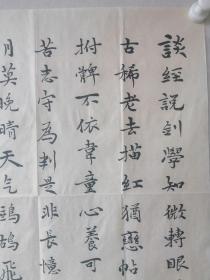 談經說劍學知微轉眼
古稀老去描紅猶戀帖
拊髀不依韋童心養可
苦志守為判是非長憶
月莫晚晴天气鴣鴣飛